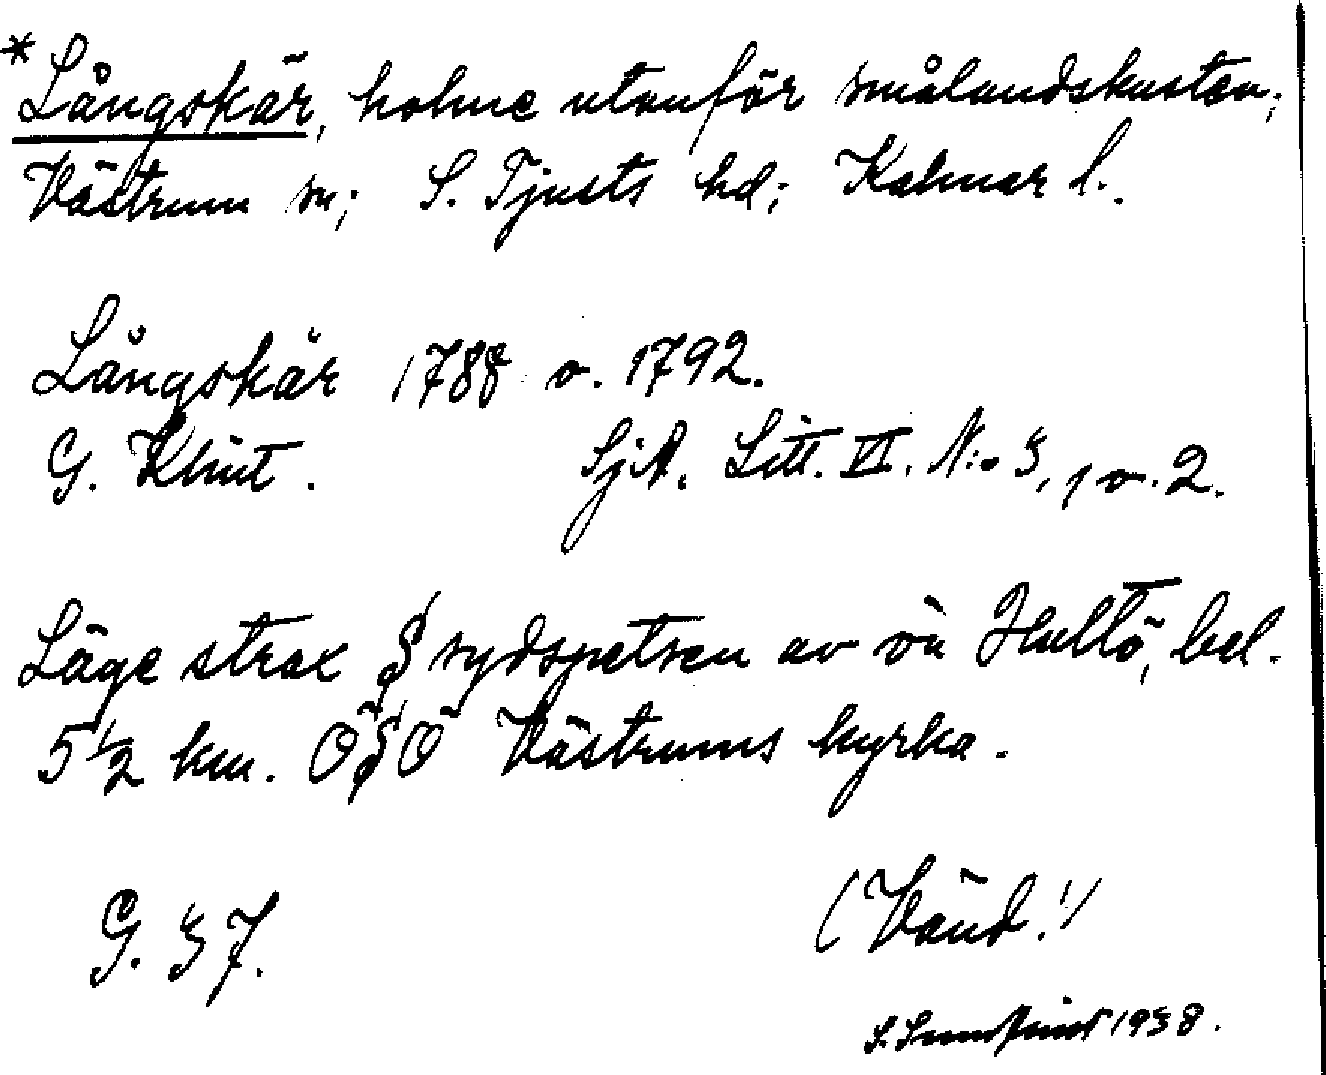 *Långskär, holme utanför smålandskusten;
Västrum sn; S. Tjusts hd; Kalmar l.
Långskär 1788 o. 1792.
G. Klint. SjA. Litt. VI. N:o 3, 1 o. 2.
Läge strax S sydspetsen av ön Hultö, bel.
5 1/2 km. ÖSÖ Västrums kyrka.
G. 37. (Vänd!)
S. 1938.